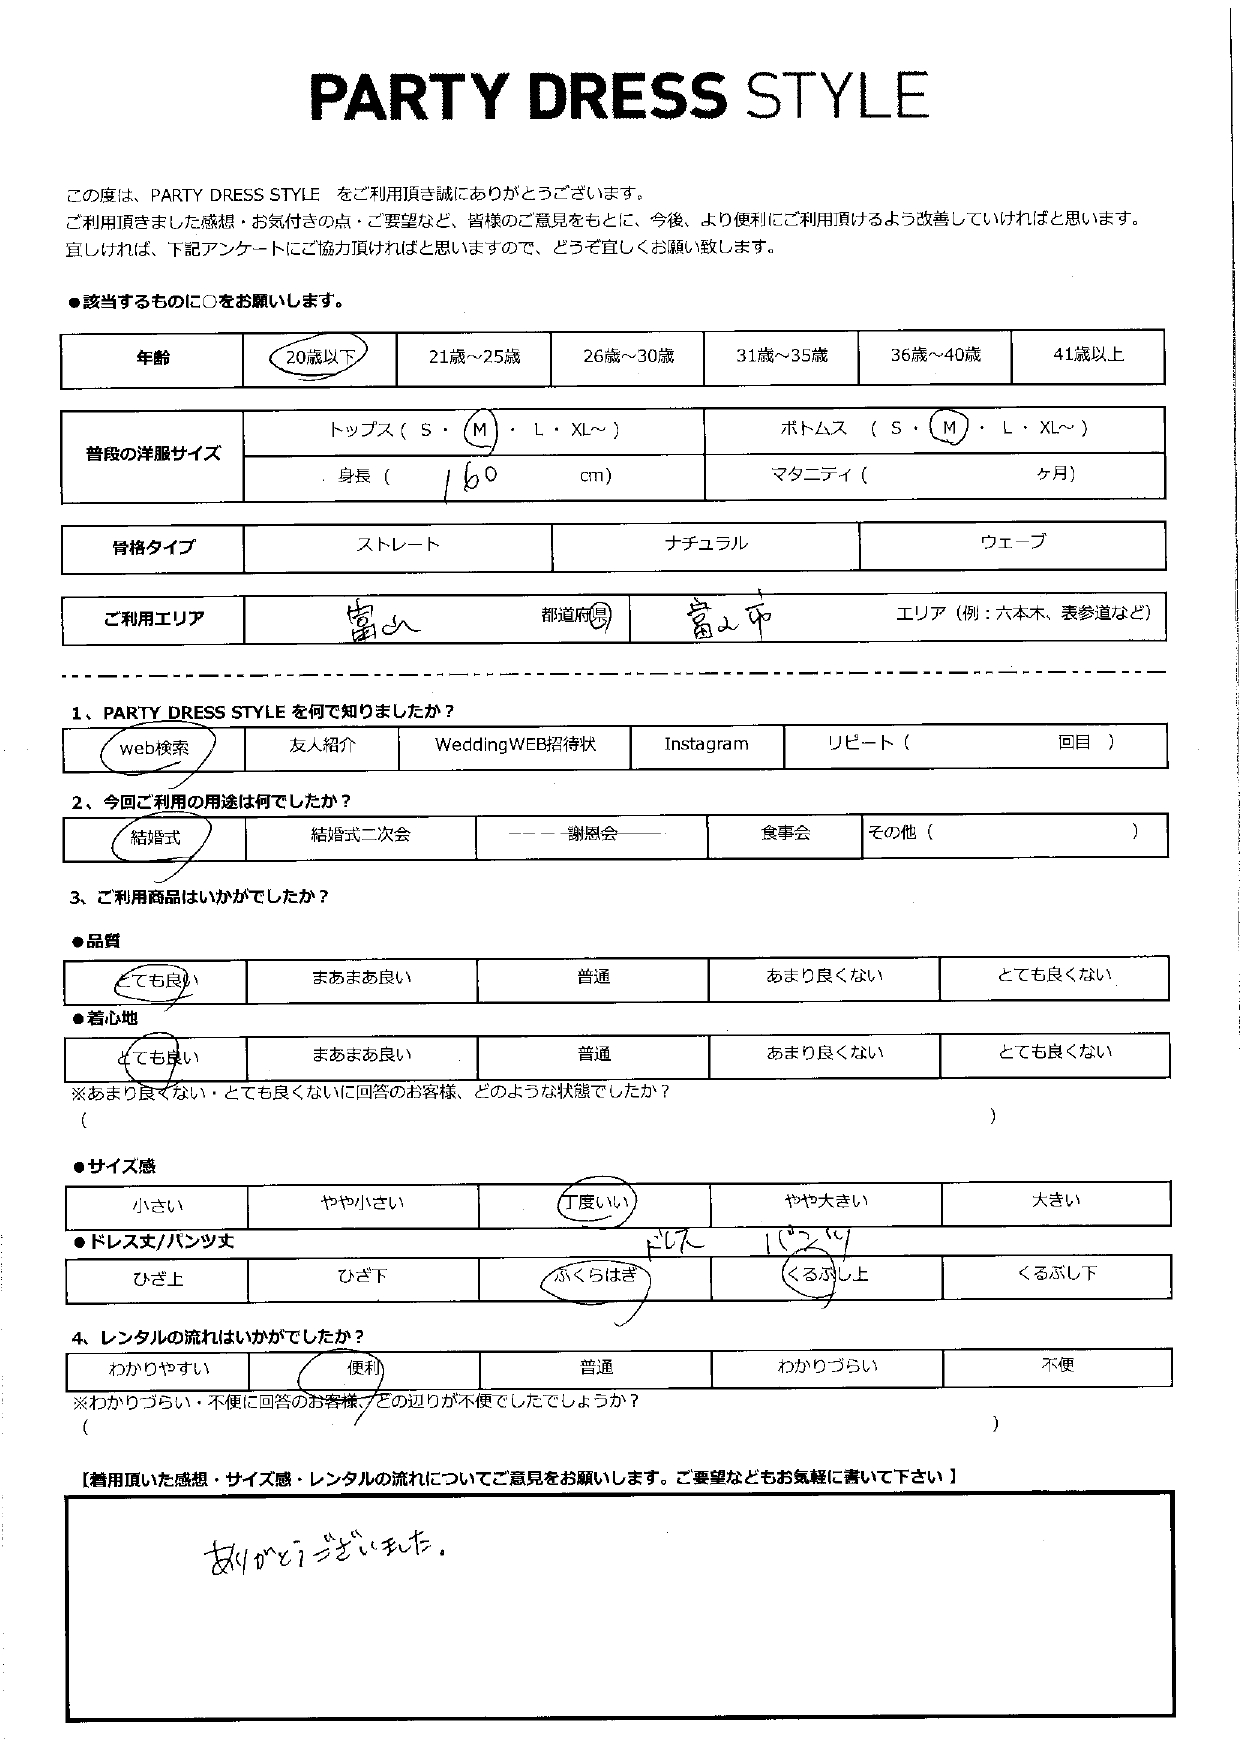 PARTY DRESS STYLE
この度は、PARTY DRESS STYLE をご利用頂き誠にありがとうございます。
ご利用頂きました感想・お気付きの点・ご要望など、皆様のご意見をもとに、今後、より便利にご利用頂けるよう改善していければと思います。
宜しければ、下記アンケートにご協力頂ければと思いますので、どうぞ宜しくお願い致します。
●該当するものに○をお願いします。
年齢 20歳以下 21歳～25歳 26歳～30歳 31歳～35歳 36歳～40歳 41歳以上
普段の洋服サイズ トップス ( S ・ M ・ L ・ XL～ ) ボトムス ( S ・ M ・ L ・ XL～ )
身長 ( 160 cm) マタニティ ( ヶ月)
骨格タイプ ストレート ナチュラル ウェーブ
ご利用エリア 富山 都道府県 富山市 エリア (例：六本木、表参道など)
1、PARTY DRESS STYLE を何で知りましたか？
web検索 友人紹介 WeddingWEB招待状 Instagram リピート ( 回目 )
2、今回ご利用の用途は何でしたか？
結婚式 結婚式二次会 謝恩会 食事会 その他 ( )
3、ご利用商品はいかがでしたか？
●品質
とても良い まあまあ良い 普通 あまり良くない とても良くない
●着心地
とても良い まあまあ良い 普通 あまり良くない とても良くない
※あまり良くない・とても良くないに回答のお客様、どのような状態でしたか？
( )
●サイズ感
小さい やや小さい 丁度いい やや大きい 大きい
●ドレス丈/パンツ丈 ドレス パンツ
ひざ上 ひざ下 ふくらはぎ くるぶし上 くるぶし下
4、レンタルの流れはいかがでしたか？
わかりやすい 便利 普通 わかりづらい 不便
※わかりづらい・不便に回答のお客様、どの辺りが不便でしたでしょうか？
( )
【着用頂いた感想・サイズ感・レンタルの流れについてご意見をお願いします。ご要望などもお気軽に書いて下さい】
ありがとうございました.